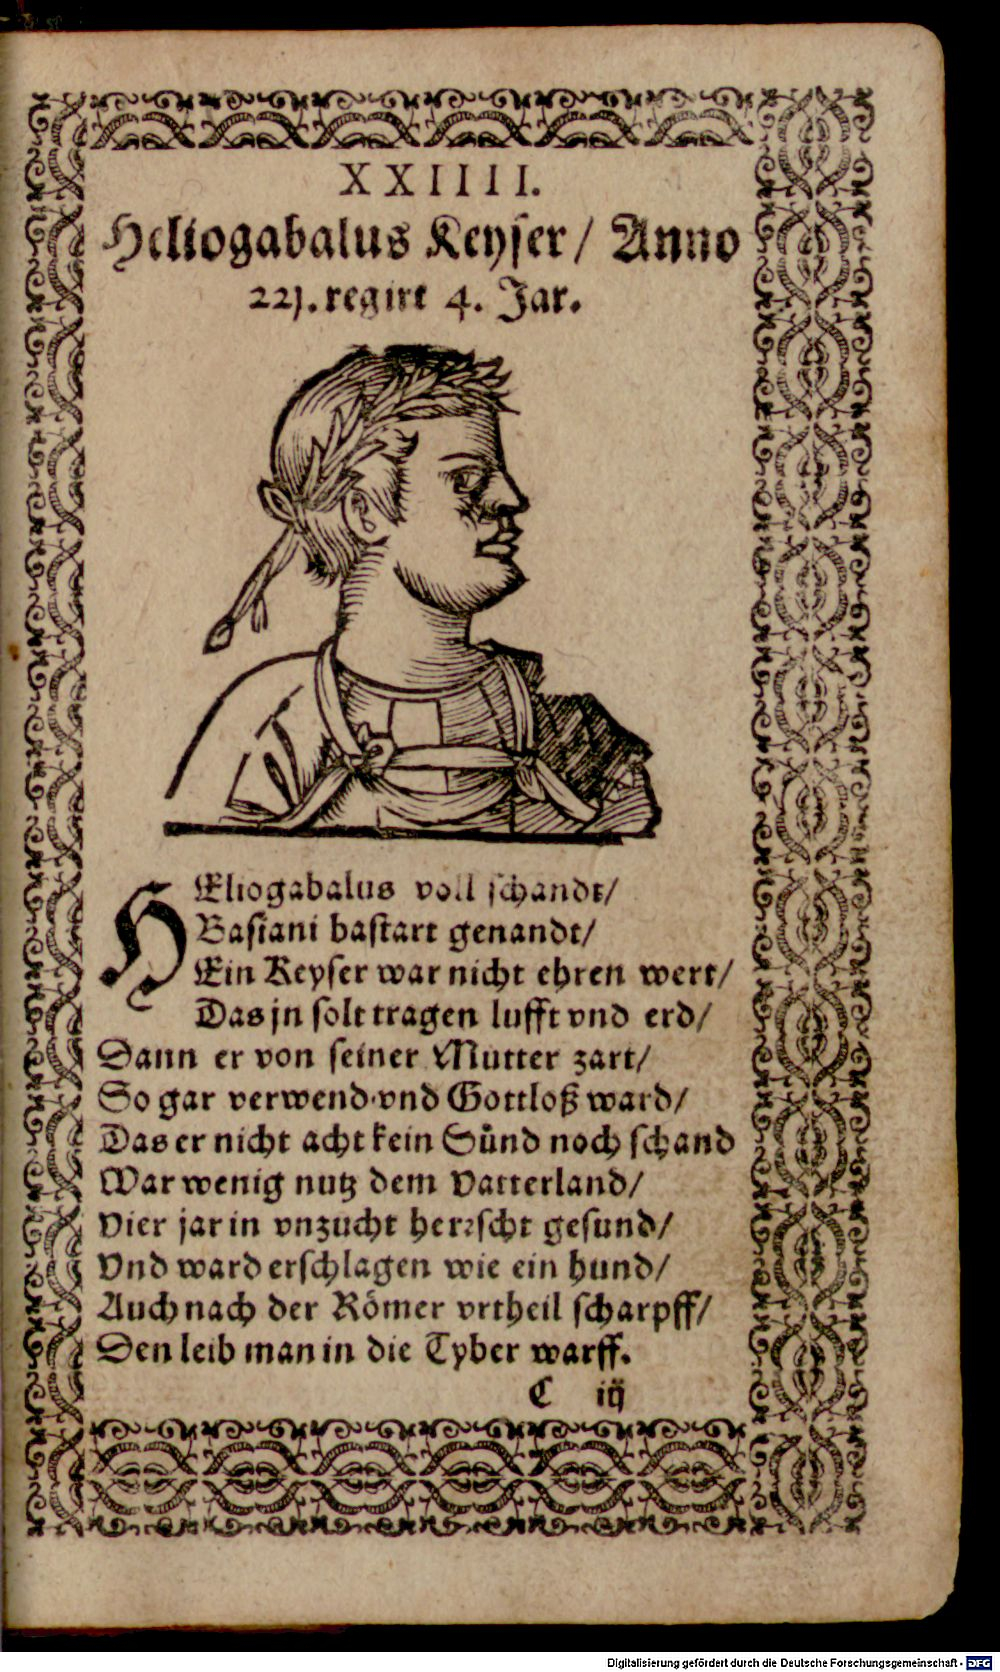 XXIIII.
Heliogabalus Keyser / Anno
221. regirt 4. Jar.
HEliogabalus voll schandt /
Basiani bastart genandt /
Ein Keyser war nicht ehren wert /
Das jn solt tragen lufft vnd erd /
Dann er von seiner Mutter zart /
So gar verwend vnd Gottloß ward /
Das er nicht acht kein Sünd noch schand
War wenig nutz dem Vatterland /
Vier jar in vnzucht herrscht gesund /
Vnd ward erschlagen wie ein hund /
Auch nach der Römer vrtheil scharpff /
Den leib man in die Tyber warff.
C iij
Digitalisierung gefördert durch die Deutsche Forschungsgemeinschaft - DFG